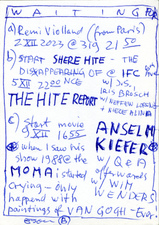 WAITING FOR
a) Remi Violland (from Paris)
2 XII 2023 @ 319 21 50
b) START SHERE HITE - THE
DISAPPEARING OF @ IFC
5 XII 22 00 NCE w/ DS.
IRIS BROSCH
THE HITE REPORT
+ NICOLE ALINA
c) Start movie
9 XII 1655
ANSELM
KIEFER
@ when I saw his
show 1988 @ the
MOMA I started
crying - only
happened with
w/ Q & A
afterwards
w/ WIM
WENDERS
paintings of VAN GOGH - Ever